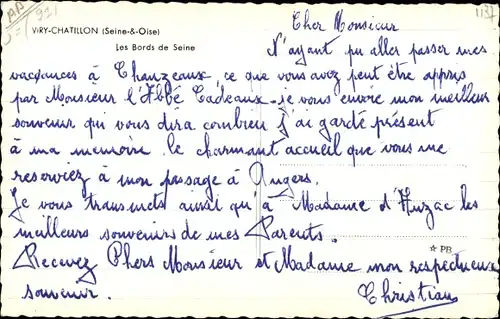 1137
AP
921
VIRY-CHATILLON (Seine-&-Oise)
Les Bords de Seine
Cher Monsieur
N'ayant pu aller passer mes
vacances à Chanzeaux, ce que vous avez peut être appris
par Monsieur l'Abbé Cadeaux je vous envoie mon meilleur
souvenir qui vous dira combien j'ai gardé présent
à ma memoire le charmant accueil que vous me
reserviez à mon passage à Angers.
Je vous transmets aussi qu'à Madame d'Auzac les
meilleurs souvenirs de mes Parents.
★ PR
Recevez Chers Monsieur et Madame mon respectueux
souvenir.
Christian